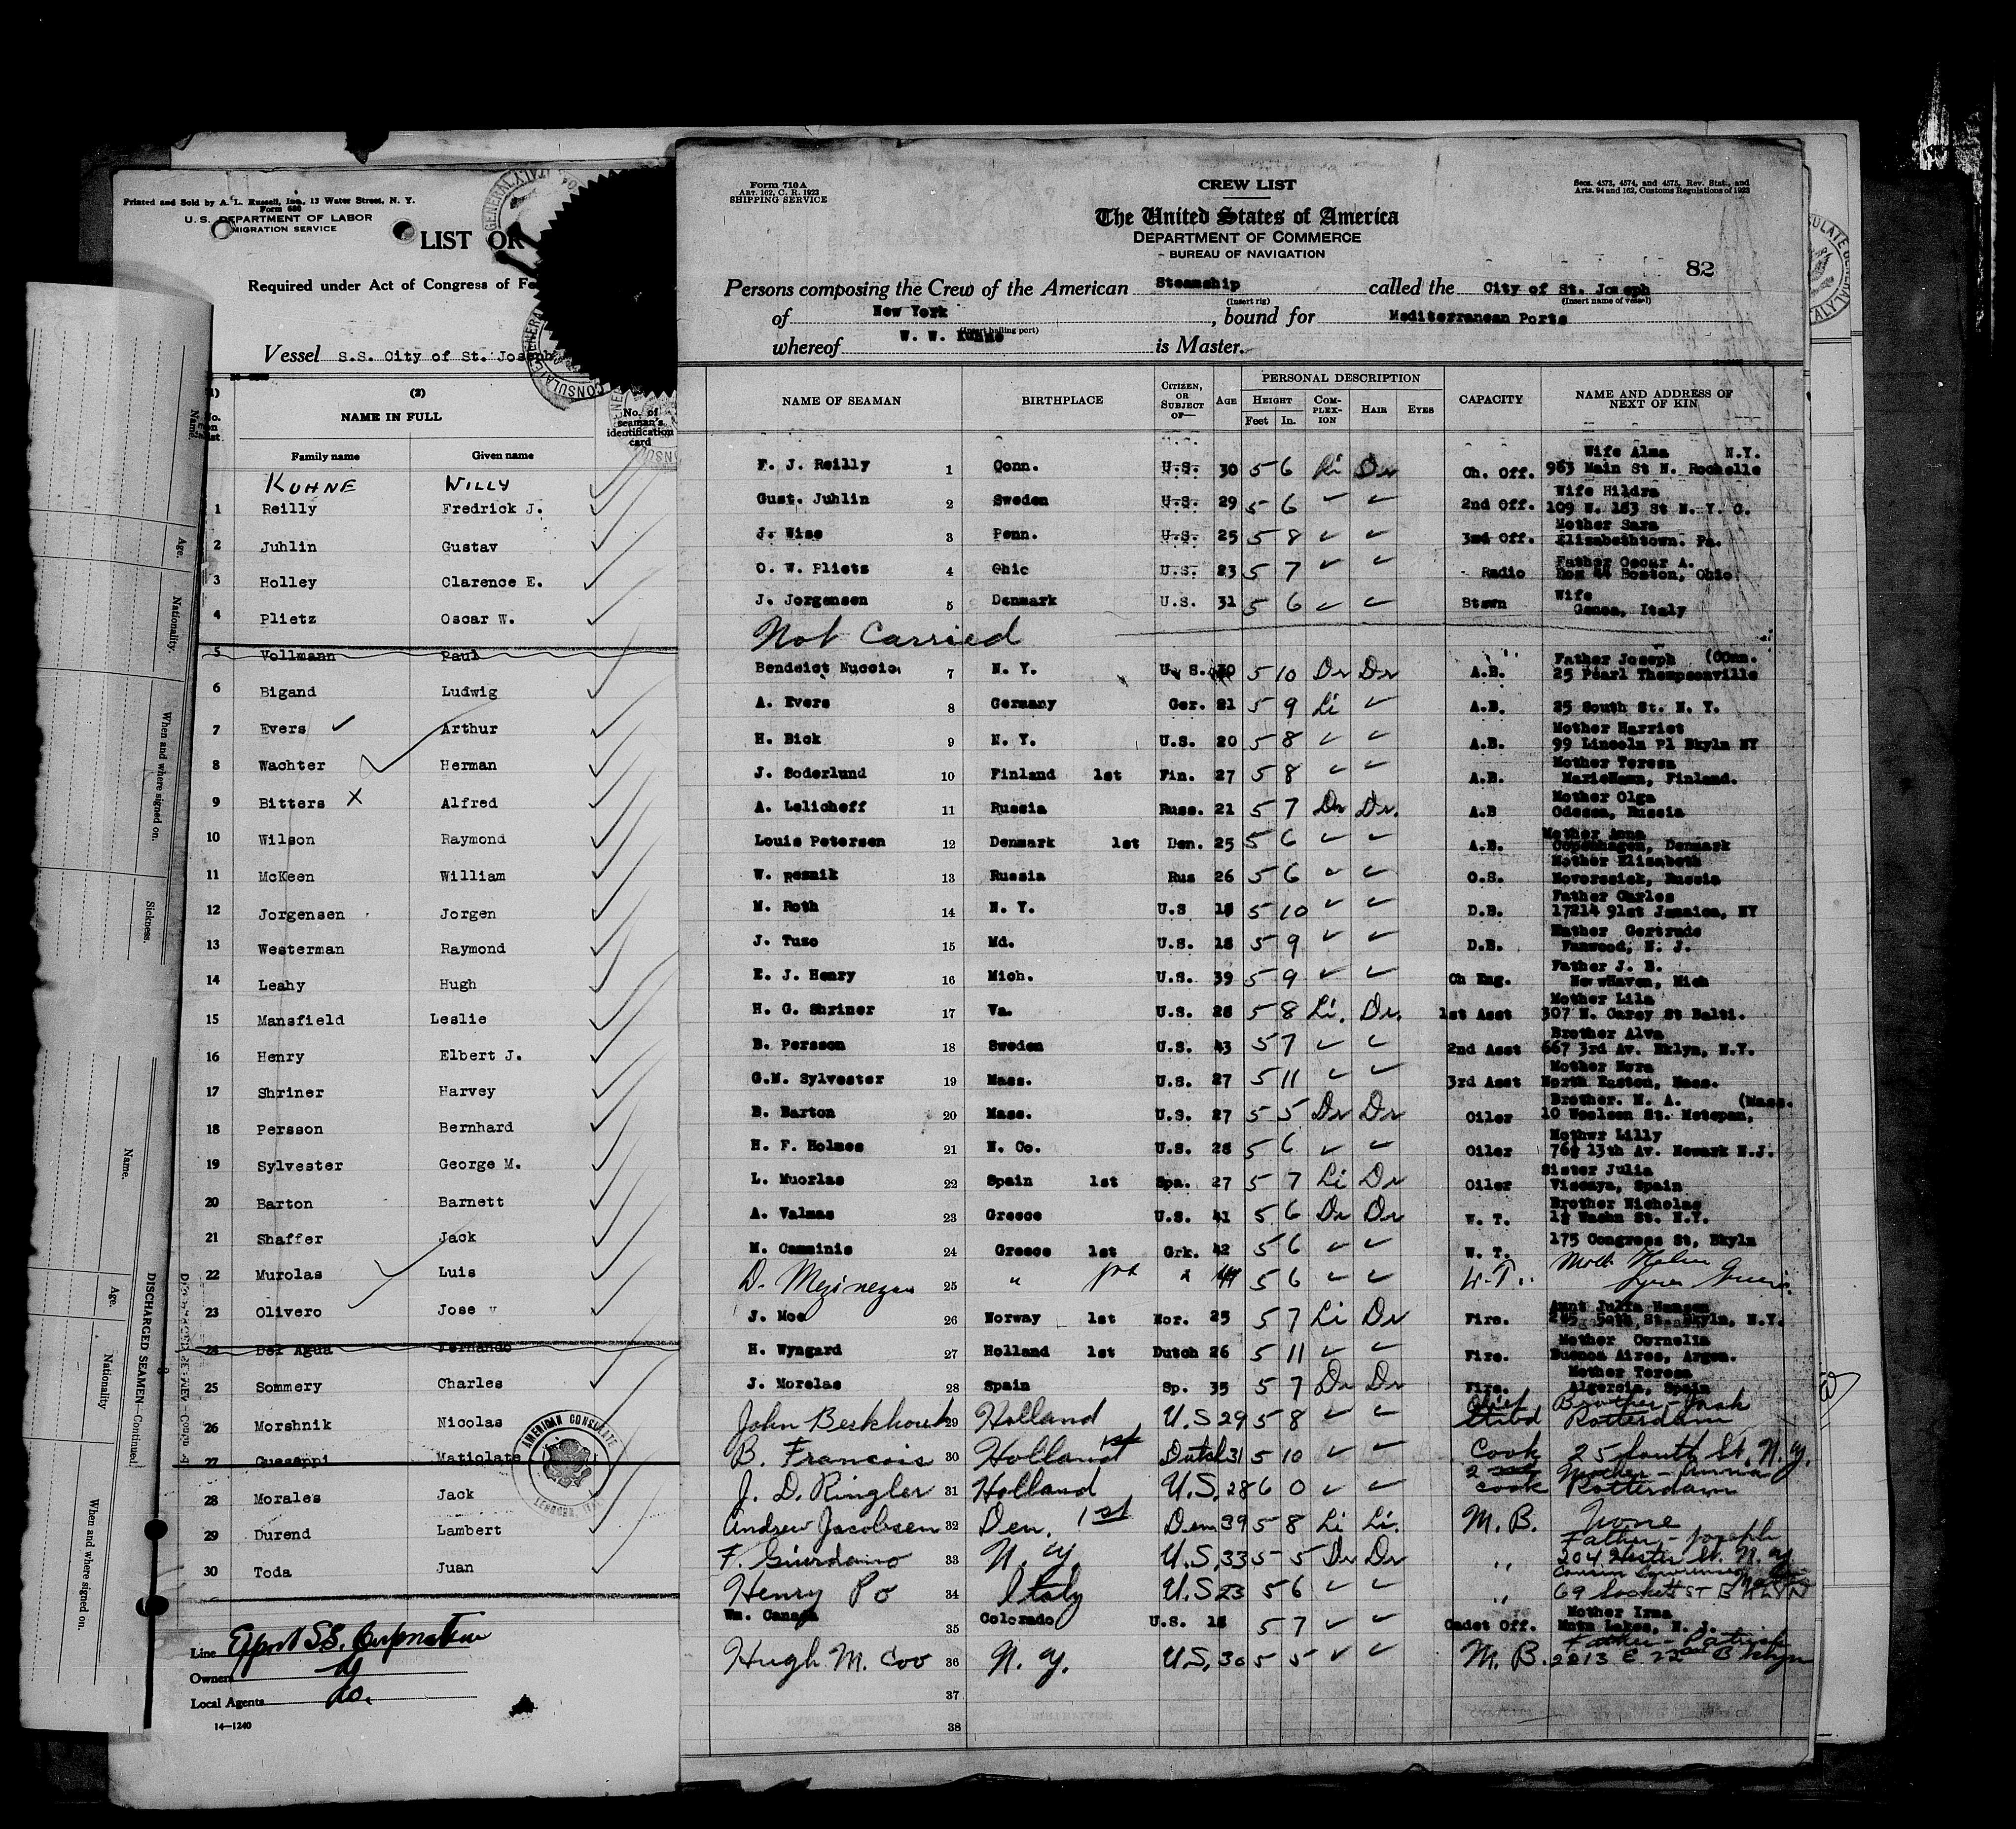 Printed and Sold by A. L. Russell, Inc., 13 Water Street, N. Y.
Form 680
U. S. DEPARTMENT OF LABOR
IMMIGRATION SERVICE
LIST OR
Required under Act of Congress of Fe
Vessel S.S. City of St. Joseph
(2)
NAME IN FULL
No. of seaman's identification card
Family name Given name
KUHNE WILLY
1 Reilly Fredrick J.
2 Juhlin Gustav
3 Holley Clarence E.
4 Plietz Oscar W.
5 Vollmann Paul
6 Bigand Ludwig
7 Evers Arthur
8 Wachter Herman
9 Bitters X Alfred
10 Wilson Raymond
11 McKeen William
12 Jorgensen Jorgen
13 Westerman Raymond
14 Leahy Hugh
15 Mansfield Leslie
16 Henry Elbert J.
17 Shriner Harvey
18 Persson Bernhard
19 Sylvester George M.
20 Barton Barnett
21 Shaffer Jack
22 Murolas Luis
23 Olivero Jose
24 Del Agua Fernando
25 Sommery Charles
26 Morshnik Nicolas
27 Guaseppi Matiolate
28 Morales Jack
29 Durend Lambert
30 Toda Juan
AMERICAN CONSULATE
Line Export S.S. Corporation
Owners
Local Agents do.
14—1240
Name.
Age.
Nationality.
When and where signed on.
Sickness.
DISCHARGED SEAMEN—Continued
Name.
Age.
Nationality
When and where signed on.
Form 710A
ART. 162, C. R. 1923
SHIPPING SERVICE
CREW LIST
Secs. 4573, 4574, and 4575, Rev. Stat., and
Arts. 94 and 162, Customs Regulations of 1923
The United States of America
DEPARTMENT OF COMMERCE
BUREAU OF NAVIGATION
82
Persons composing the Crew of the American Steamship called the City of St. Joseph
(Insert rig) (Insert name of vessel)
of New York, bound for Mediterranean Ports
(Insert hailing port)
whereof W. W. Kuhne is Master.
NAME OF SEAMAN BIRTHPLACE CITIZEN, OR SUBJECT OF— AGE PERSONAL DESCRIPTION CAPACITY NAME AND ADDRESS OF NEXT OF KIN
HEIGHT COMPLEXION HAIR EYES
Feet In.
F. J. Reilly 1 Conn. U.S. 30 5 6 Li Dr Ch. Off. Wife Alma N.Y.
963 Main St N. Rochelle
Gust. Juhlin 2 Sweden U.S. 29 5 6 2nd Off. Wife Hildra
109 W. 183 St N. Y. C.
J. Wise 3 Penn. U.S. 25 5 8 3rd Off. Mother Sara
Elizabethtown. Pa.
O. W. Pliets 4 Ohio U.S. 23 5 7 Radio Father Oscar A.
Box 44 Boston, Ohio
J. Jorgensen 5 Denmark U.S. 31 5 6 Btswn Wife
Genoa, Italy
Not Carried
Bendeict Nuccio 7 N. Y. U. S. 30 5 10 Dr Dr A.B. Father Joseph (Conn.
25 Pearl Thompsonville
A. Evers 8 Germany Ger. 21 5 9 Li A.B. 25 South St. N. Y.
H. Bick 9 N. Y. U.S. 20 5 8 A.B. Mother Harriet
99 Lincoln Pl Bkyln NY
J. Soderlund 10 Finland 1st Fin. 27 5 8 A.B. Mother Teresa
MarieHamn, Finland.
A. Lelicheff 11 Russia Russ. 21 5 7 Dr Dr. A.B Mother Olga
Odessa, Russia
Louis Petersen 12 Denmark 1st Den. 25 5 6 A.B. Mother Anna
Copenhagen, Denmark
W. Resnik 13 Russia Rus 26 5 6 O.S. Mother Elizabeth
Novorosisk, Russia
M. Roth 14 N. Y. U.S 18 5 10 D.B. Father Carles
17214 91st Jamaica, NY
J. Tuzo 15 Md. U.S. 18 5 9 D.B. Mather Gertrude
Fanwood, N. J.
E. J. Henry 16 Mich. U.S. 39 5 9 Ch Eng. Father J. B.
New Haven, Mich
H. G. Shriner 17 Va. U.S. 28 5 8 Li. Dr. 1st Asst Mother Lila
307 N. Carey St Balti.
B. Persson 18 Sweden U.S. 43 5 7 2nd Asst Brother Alva
667 3rd Av. Bklyn, N.Y.
G.M. Sylvester 19 Mass. U.S. 27 5 11 3rd Asst Mother Nora
North Easton, Mass.
B. Barton 20 Mass. U.S. 27 5 5 Dr Dr Oiler Brother. M. A. (Mass.
10 Woolsen St. Matepan,
H. F. Holmes 21 N. Co. U.S. 28 5 6 Oiler Mothwr Lilly
13th Av. Newark N.J.
L. Muorlas 22 Spain 1st Spa. 27 5 7 Li Dr Oiler Sister Julia
Viscaya, Spain
A. Valmas 23 Greece U.S. 41 5 6 Dr Dr W. T. Brother Nicholas
Washn St. N.Y.
M. Camminis 24 Greece 1st Grk. 42 5 6 W. T. 175 Congress St, Bkyln
25 " 1st " 5 6 W.T. Moth Helen
J. Moe 26 Norway 1st Nor. 25 5 7 Li Dr Fire. Aunt Julia Hansen
50th St. Bkyln, N.Y.
H. Wyngard 27 Holland 1st Dutch 26 5 11 Fire. Mother Cornelia
Buenoa Aires, Argen.
J. Morelas 28 Spain Sp. 35 5 7 Dr Dr Fire. Mother Teresa
Algercia, Spain
John Berkhout 29 Holland U.S 29 5 8 Chief Stwd Brother - Jack
Rotterdam
B. Francois 30 Holland 1st Dutch 31 5 10 Cook 25 South St. N.Y.
J. D. Ringler 31 Holland U.S. 28 6 0 2 cook Mother - Anna
Rotterdam
Andrew Jacobsen 32 Den. 1st Den 39 5 8 Li Li. M.B. None
F. Giurdano 33 N.Y. U.S. 33 5 5 Dr Dr " Father - Joseph
204 Hester St. N.Y.
Henry Po 34 Italy U.S 23 5 6 " Cousin
69 Sackett ST BKLYN
Wm. Canada 35 Colorado U.S. 18 5 7 Cadet Off. Mother Irma
Mntn Lakes, N. J.
Hugh M. Coo 36 N.Y. U.S. 30 5 5 M.B. Father - Patrick
2213 E. 22nd Bklyn
37
38